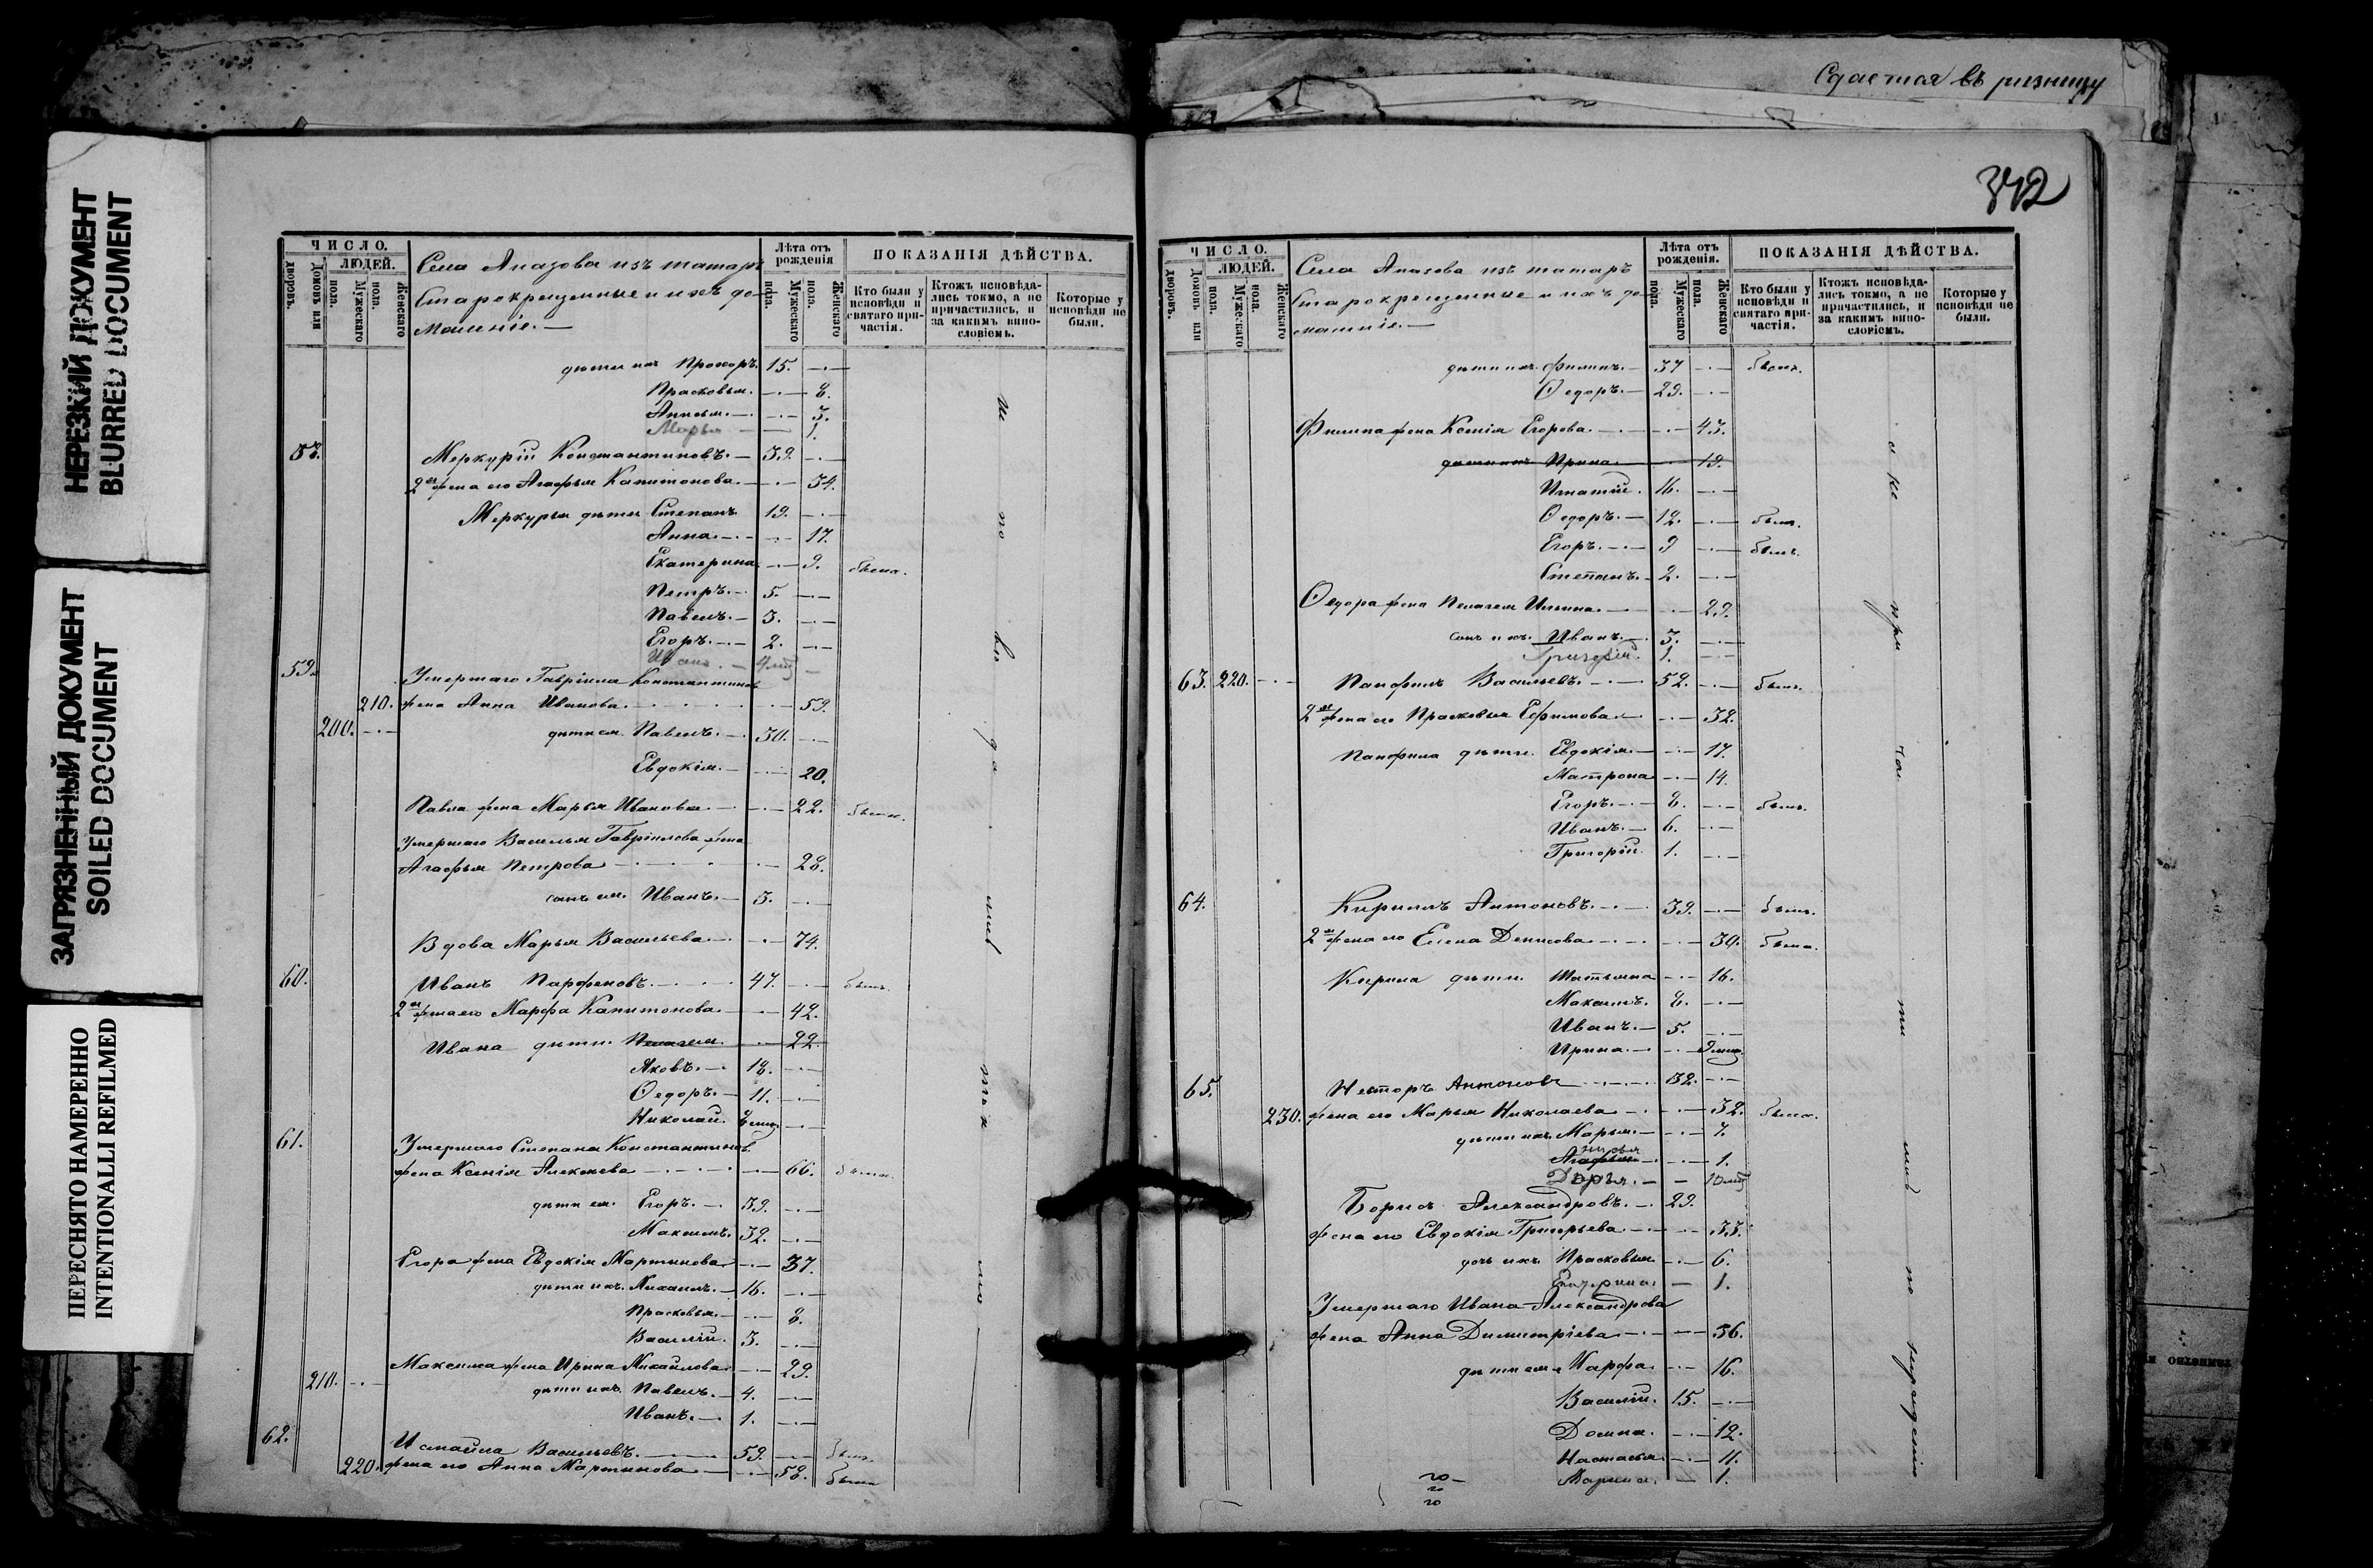 НЕРЕЗКИЙ ДОКУМЕНТ
BLURRED DOCUMENT
ЗАГРЯЗНЕННЫЙ ДОКУМЕНТ
SOILED DOCUMENT
ПЕРЕСНЯТО НАМЕРЕННО
INTENTIONALLI REFILMED
ЧИСЛО.
ЛЮДЕЙ.
Домовъ или дворовъ.
Мужескаго пола.
Женскаго пола.
Села Апазова изъ татаръ
Старокрещенные и ихъ до-
машніе. —
Лѣта отъ рожденія
Мужескаго пола.
Женскаго пола.
ПОКАЗАНІЯ ДѢЙСТВА.
Кто были у исповѣди и святаго причастія.
Ктожъ исповѣдались токмо, а не причастились, и за какимъ винословіемъ.
Которые у исповѣди не были.
дѣти ихъ Прохоръ. 15. —
Прасковья. — 8.
Анисья. — 3.
Марья — 1.
58. Меркурій Константиновъ. — 39. —
2ая жена его Агафья Капитонова. — 34.
Меркурья дѣти Степанъ 19. —
Анна. — 17.
Екатерина — 9. была.
Петръ. — 5. —
Павелъ. — 3. —
Егоръ. — 2. —
Иванъ. —
59. Умершаго Гавріила Константинов
210. жена Анна Иванова. — 59.
200. — дѣти ея. Павелъ. — 30. —
Евдокія. — 20.
Павла жена Марья Иванова. — 22. была.
Умершаго Василья Гавріилова жена
Агафья Петрова — 28.
сынъ ея. Иванъ. — 3. —
Вдова Марья Васильева. — 74.
60. Иванъ Парфеновъ. — 47. — былъ.
2ая жена его Марфа Капитонова. — 42.
Ивана дѣти. Пелагея. — 22.
Яковъ. — 18. —
Ѳедоръ. — 11. —
Николай. —
61. Умершаго Степана Константинов
жена Ксенія Алексѣева — 66. была.
дѣти ея. Егоръ. — 39. —
Максимъ. 32. —
Егора жена Евдокія Мартынова — 37.
дѣти ихъ. Михаилъ. — 16. —
Прасковья. — 8.
Василій. 3. —
Максима жена Ирина Михайлова. — 29.
210. — дѣти ихъ. Павелъ. — 4. —
Иванъ. — 1. —
62. Исмаила Васильевъ. — 59. — былъ
220. жена его Анна Мартынова — 58. была
Сдается въ ризницу
342
ЧИСЛО.
ЛЮДЕЙ.
Домовъ или дворовъ.
Мужескаго пола.
Женскаго пола.
Села Апазова изъ татаръ
Старокрещенные и ихъ до-
машніе. —
Лѣта отъ рожденія.
Мужескаго пола.
Женскаго пола.
ПОКАЗАНІЯ ДѢЙСТВА.
Кто были у исповѣди и святаго причастія.
Ктожъ исповѣдались токмо, а не причастились, и за какимъ винословіемъ.
Которые у исповѣди не были.
дѣти ихъ. Филипъ. — 37 — былъ.
Ѳедоръ. — 29. —
Филипа жена Ксенія Егорова. — 43.
дѣти ихъ Ирина. — 19.
Игнатій. 16. —
Ѳедоръ. — 12. — былъ.
Егоръ. — 9 — былъ.
Степанъ. — 2. —
Ѳедора жена Пелагея Ильина. — 29.
сынъ ихъ. Иванъ. — 3. —
Григорій. 1. —
63. 220. — Панфилъ Васильевъ. — 52. — былъ.
2ая жена его Прасковья Ефимова. — 32.
Панфила дѣти. Евдокія. — 17.
Матрона — 14.
Егоръ. — 8. — былъ.
Иванъ. — 6. —
Григорій. 1. —
64. Кирилъ Антоновъ. — 39. — былъ.
2ая жена его Елена Денисова. — 30. была.
Кирила дѣти. Татьяна — 16.
Максимъ. 8. —
Иванъ. — 5. —
Ирина. —
65. Несторъ Антоновъ — 32. —
230. жена его Марья Николаева — 32. была.
дѣти ихъ. Марья. — 7.
Агафья — 1.
Дарья. —
Борисъ Александровъ. — 29.
жена его Евдокія Григорьева — 33.
дочь ихъ Прасковья — 6.
Екатерина. — 1.
Умершаго Ивана Александрова
жена Анна Димитріева. — 36.
дѣти ея Марфа. — 16.
Василій. 15. —
Домна. — 12.
Настасья. — 11.
Марина. — 1.